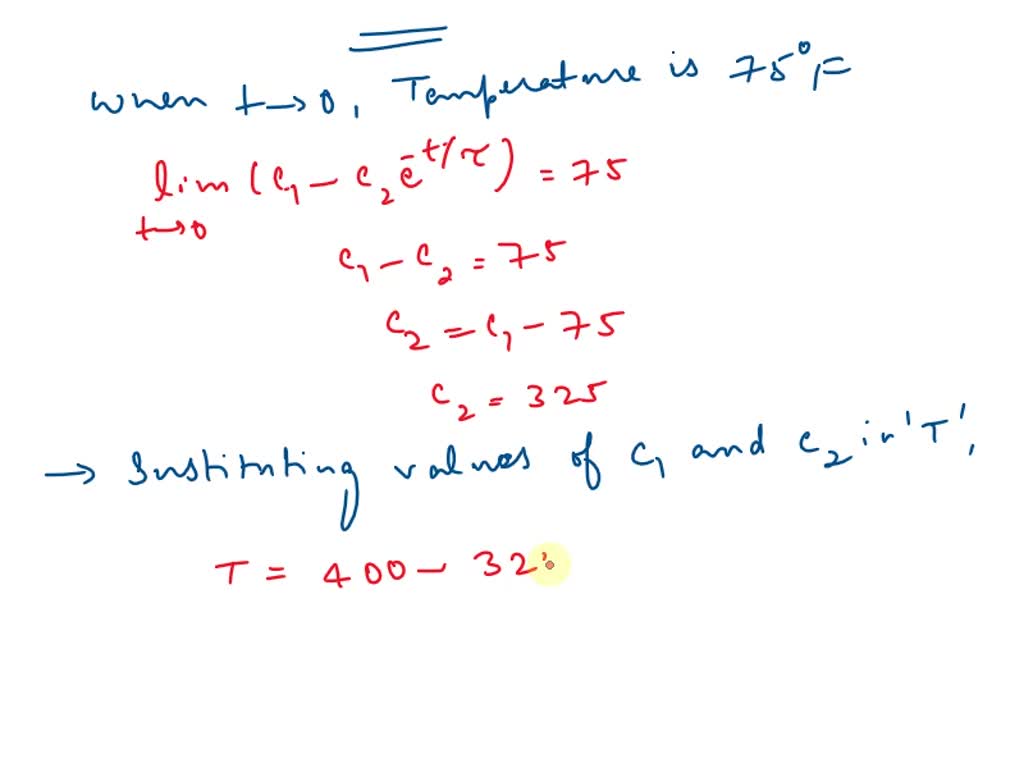 when t→0, Temperature is 75°F
lim (c₁ − c₂ e^(-t/τ)) = 75
t→0
c₁ − c₂ = 75
c₂ = c₁ − 75
c₂ = 325
→ Sustituting values of c₁ and c₂ in 'T',
T = 400 − 32